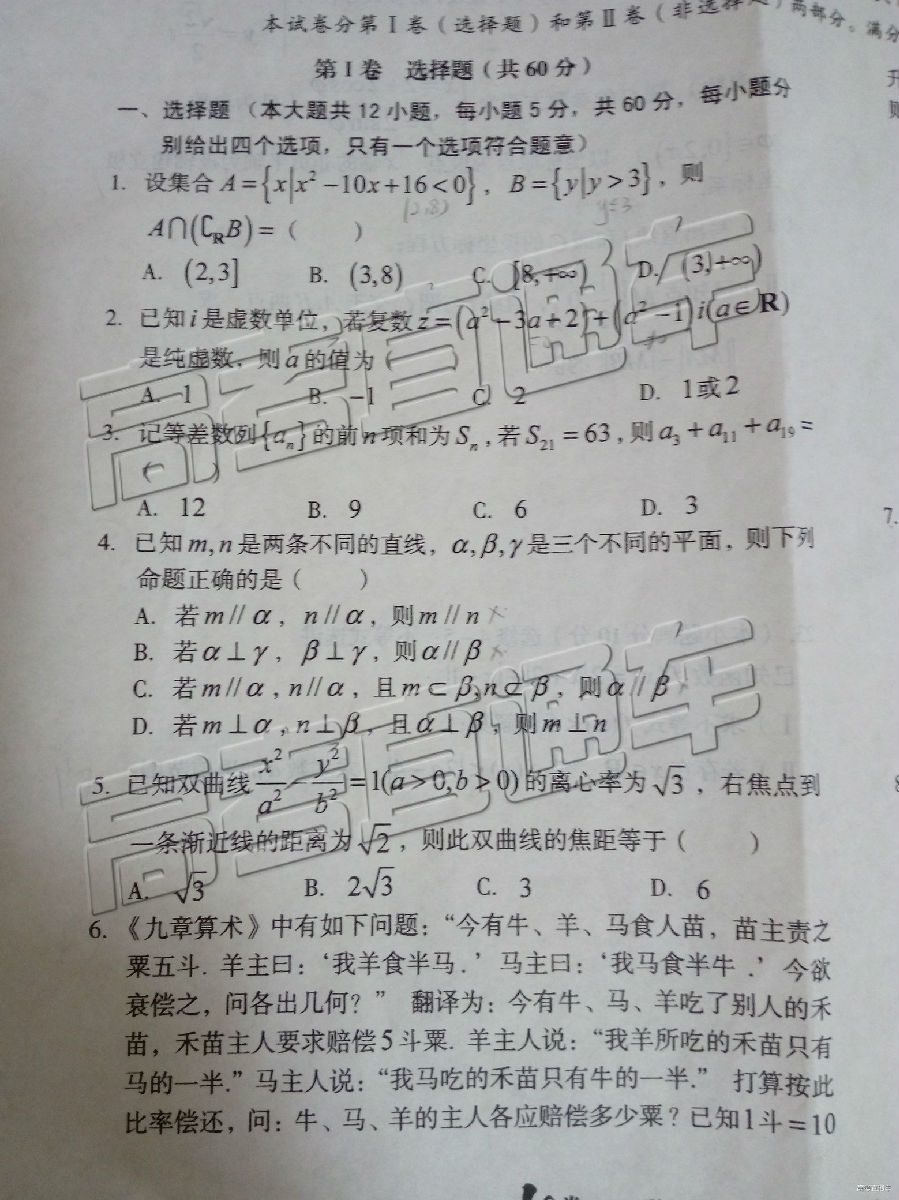 本试卷分第Ⅰ卷(选择题)和第Ⅱ卷(非选择题)两部分。满分
第Ⅰ卷 选择题(共60分)
一、选择题 (本大题共12小题,每小题5分,共60分,每小题分
别给出四个选项,只有一个选项符合题意)
1. 设集合A={x|x²-10x+16<0}, B={y|y>3}, 则
(2,8) y≤3
A∩(∁ᴿB)=( )
A. (2,3] B. (3,8) C. [8,+∞) D. (3,+∞)
2. 已知i是虚数单位,若复数z=(a²-3a+2)+(a²-1)i(a∈R)
是纯虚数,则a的值为( )
A. 1 B. -1 C. 2 D. 1或2
3. 记等差数列{aₙ}的前n项和为Sₙ,若S₂₁=63,则a₃+a₁₁+a₁₉=
( )
A. 12 B. 9 C. 6 D. 3
4. 已知m,n是两条不同的直线,α,β,γ是三个不同的平面,则下列
命题正确的是( )
A. 若m//α, n//α, 则m//n ×
B. 若α⊥γ, β⊥γ, 则α//β ×
C. 若m//α,n//α, 且m⊂β,n⊂β, 则α//β
D. 若m⊥α,n⊥β,且α⊥β,则m⊥n
5. 已知双曲线x²/a²-y²/b²=1(a>0,b>0)的离心率为√3, 右焦点到
一条渐近线的距离为√2, 则此双曲线的焦距等于( )
A. √3 B. 2√3 C. 3 D. 6
6.《九章算术》中有如下问题:“今有牛、羊、马食人苗,苗主责之
粟五斗. 羊主曰:‘我羊食半马.’ 马主曰:‘我马食半牛.’ 今欲
衰偿之,问各出几何?” 翻译为:今有牛、马、羊吃了别人的禾
苗,禾苗主人要求赔偿5斗粟. 羊主人说:“我羊所吃的禾苗只有
马的一半.”马主人说:“我马吃的禾苗只有牛的一半.” 打算按此
比率偿还,问:牛、马、羊的主人各应赔偿多少粟?已知1斗=10
高考直通车
高考直通车
7.